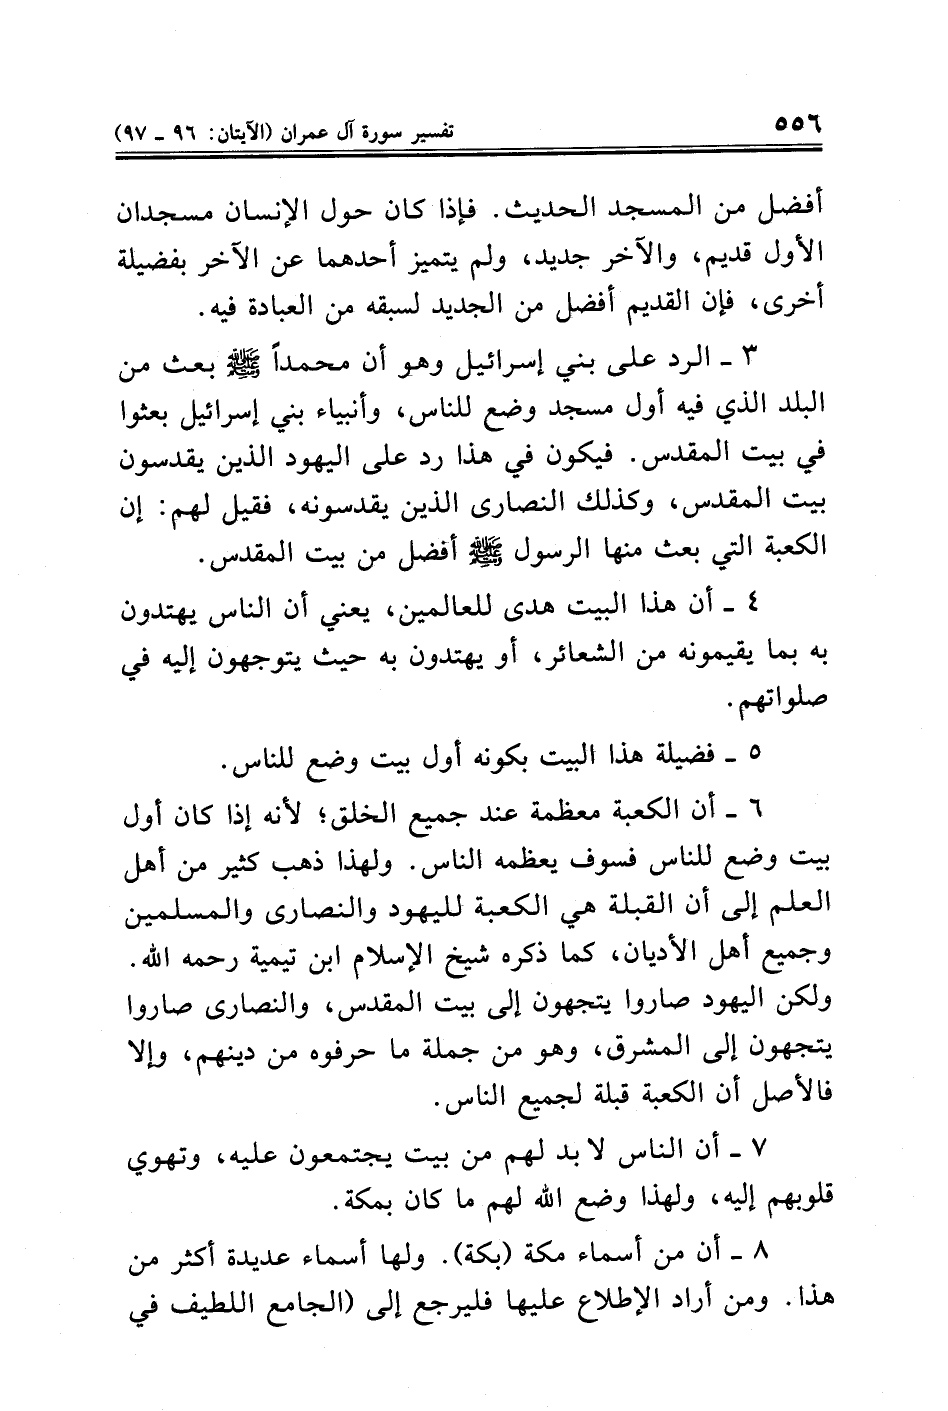 ٥٥٦ تفسير سورة آل عمران (الآيتان: ٩٦ ـ ٩٧)
أفضل من المسجد الحديث. فإذا كان حول الإنسان مسجدان
الأول قديم، والآخر جديد، ولم يتميز أحدهما عن الآخر بفضيلة
أخرى، فإن القديم أفضل من الجديد لسبقه من العبادة فيه.
٣ ـ الرد على بني إسرائيل وهو أن محمداً ﷺ بعث من
البلد الذي فيه أول مسجد وضع للناس، وأنبياء بني إسرائيل بعثوا
في بيت المقدس. فيكون في هذا رد على اليهود الذين يقدسون
بيت المقدس، وكذلك النصارى الذين يقدسونه، فقيل لهم: إن
الكعبة التي بعث منها الرسول ﷺ أفضل من بيت المقدس.
٤ ـ أن هذا البيت هدى للعالمين، يعني أن الناس يهتدون
به بما يقيمونه من الشعائر، أو يهتدون به حيث يتوجهون إليه في
صلواتهم.
٥ ـ فضيلة هذا البيت بكونه أول بيت وضع للناس.
٦ ـ أن الكعبة معظمة عند جميع الخلق؛ لأنه إذا كان أول
بيت وضع للناس فسوف يعظمه الناس. ولهذا ذهب كثير من أهل
العلم إلى أن القبلة هي الكعبة لليهود والنصارى والمسلمين
وجميع أهل الأديان، كما ذكره شيخ الإسلام ابن تيمية رحمه الله.
ولكن اليهود صاروا يتجهون إلى بيت المقدس، والنصارى صاروا
يتجهون إلى المشرق، وهو من جملة ما حرفوه من دينهم، وإلا
فالأصل أن الكعبة قبلة لجميع الناس.
٧ ـ أن الناس لا بد لهم من بيت يجتمعون عليه، وتهوي
قلوبهم إليه، ولهذا وضع الله لهم ما كان بمكة.
٨ ـ أن من أسماء مكة (بكة). ولها أسماء عديدة أكثر من
هذا. ومن أراد الإطلاع عليها فليرجع إلى (الجامع اللطيف في